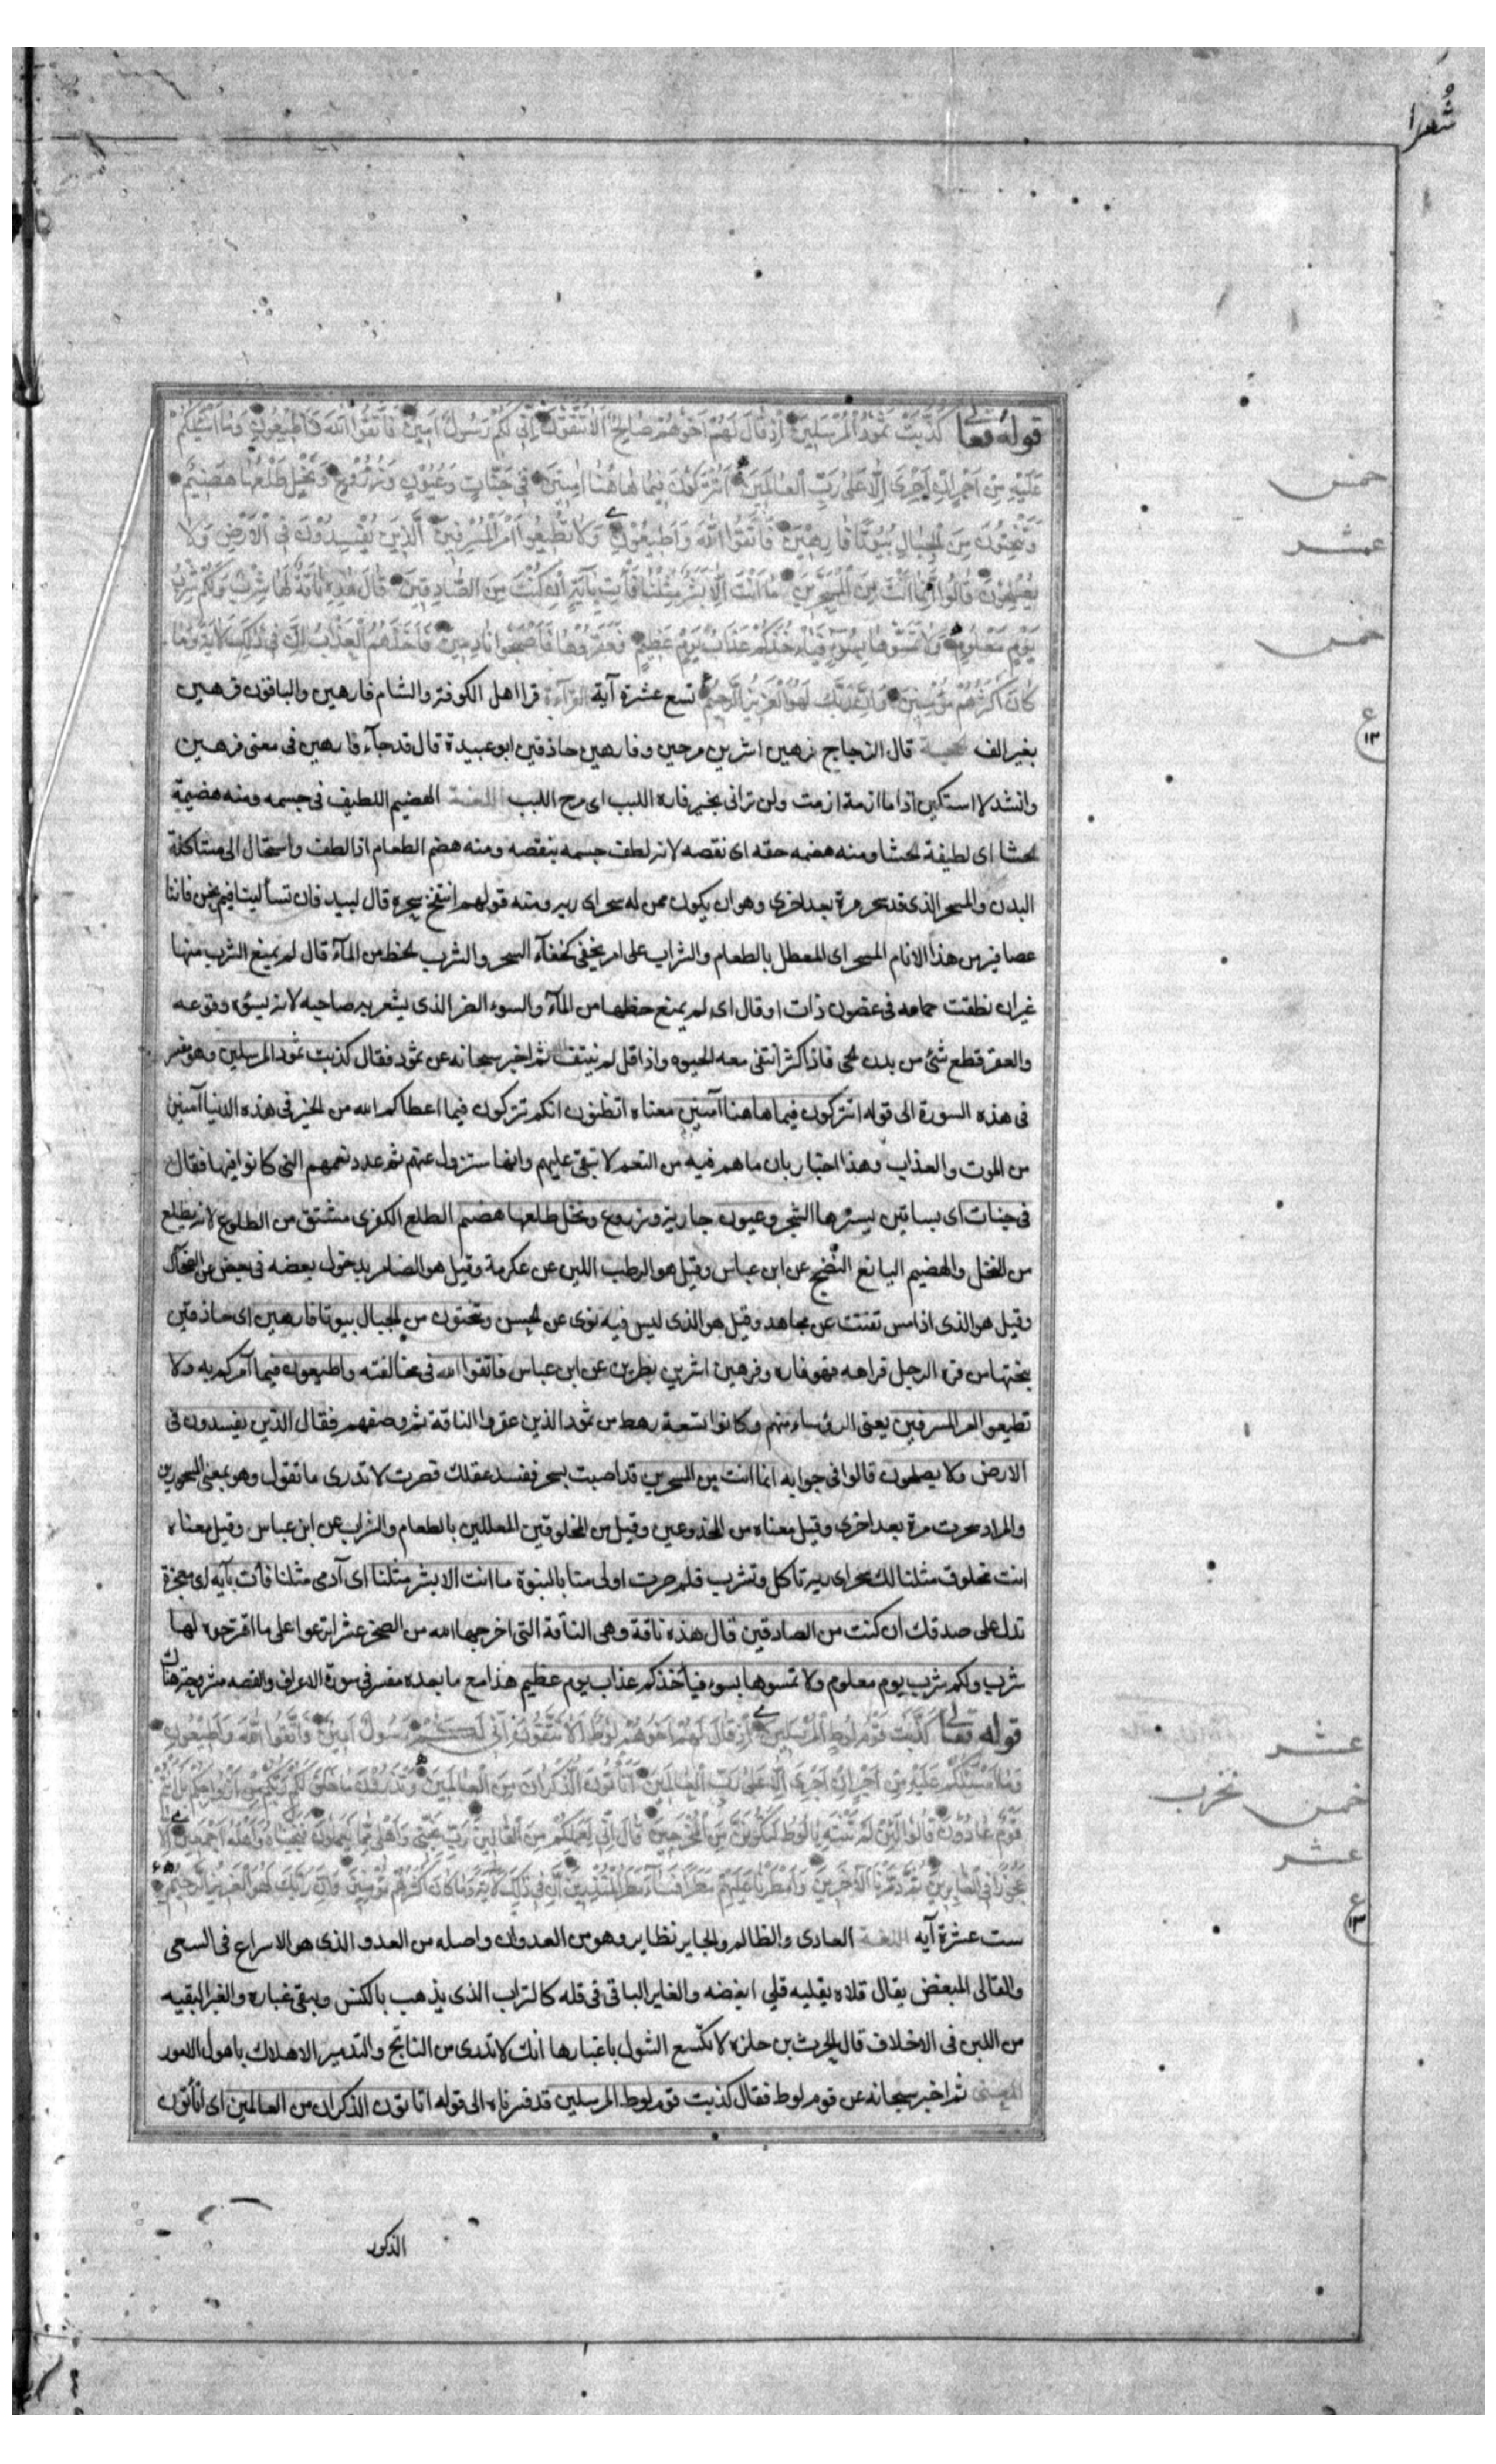 شعرا
قوله تعالى كَذَّبَتْ ثَمُودُ الْمُرْسَلِينَ إِذْ قَالَ لَهُمْ أَخُوهُمْ صَالِحٌ أَلَا تَتَّقُونَ إِنِّي لَكُمْ رَسُولٌ أَمِينٌ فَاتَّقُوا اللَّهَ وَأَطِيعُونِ وَمَا أَسْئَلُكُمْ
عَلَيْهِ مِنْ أَجْرٍ إِنْ أَجْرِيَ إِلَّا عَلَى رَبِّ الْعَالَمِينَ أَتُتْرَكُونَ فِيمَا هَاهُنَا آمِنِينَ فِي جَنَّاتٍ وَعُيُونٍ وَزُرُوعٍ وَنَخْلٍ طَلْعُهَا هَضِيمٌ
خمس
وَتَنْحِتُونَ مِنَ الْجِبَالِ بُيُوتًا فَارِهِينَ فَاتَّقُوا اللَّهَ وَأَطِيعُونِ وَلَا تُطِيعُوا أَمْرَ الْمُسْرِفِينَ الَّذِينَ يُفْسِدُونَ فِي الْأَرْضِ وَلَا
عشر
يُصْلِحُونَ قَالُوا إِنَّمَا أَنْتَ مِنَ الْمُسَحَّرِينَ مَا أَنْتَ إِلَّا بَشَرٌ مِثْلُنَا فَأْتِ بِآيَةٍ إِنْ كُنْتَ مِنَ الصَّادِقِينَ قَالَ هَذِهِ نَاقَةٌ لَهَا شِرْبٌ وَلَكُمْ شِرْبُ
يَوْمٍ مَعْلُومٍ وَلَا تَمَسُّوهَا بِسُوءٍ فَيَأْخُذَكُمْ عَذَابُ يَوْمٍ عَظِيمٍ فَعَقَرُوهَا فَأَصْبَحُوا نَادِمِينَ فَأَخَذَهُمُ الْعَذَابُ إِنَّ فِي ذَلِكَ لَآيَةً وَمَا
خمس
كَانَ أَكْثَرُهُمْ مُؤْمِنِينَ وَإِنَّ رَبَّكَ لَهُوَ الْعَزِيزُ الرَّحِيمُ تسع عشرة آية القرآءة قرا اهل الكوفة والشام فارهين والباقون فرهين
ع ١٣
بغير الف الحجة قال الزجاج فرهين اشرين مرحين وفارهين حاذقين ابو عبيدة قال قد جآء فارهين فى معنى فرهين
وانشد لا استكين اذا ما ازمة ازمت ولن ترانى بخير فاره اللبب اى مرح اللبب اللغة الهضيم اللطيف فى جسمه ومنه هضيمة
الحشا اى لطيفة الحشا ومنه هضمه حقه اى نقصه لانه لطف جسمه بنقصه ومنه هضم الطعام اذا لطف واستحال الى مشاكلة
البدن والمسحر الذى قد سحر مرة بعد اخرى وهو ان يكون ممن له سحر اى ريه ومنه قولهم انتفخ سحره قال لبيد فان تسألينا فيم نحن فاننا
عصافير من هذا الانام المسحر اى المعطل بالطعام والشراب على امر يخفى كخفآء السحر والشرب الحظ من المآء قال لم يمنع الشرب منها
غير ان نطقت حمامه فى غصون ذات اوقال اى لم يمنع حظها من المآء والسوء الضر الذى يشعر به صاحبه لانه يسوء وقوعه
والعقر قطع شئ من بدن الحى فاذا كثر انتفى معه الحيوه واذا قل لم ينتف ثم اخبر سبحانه عن ثمود فقال كذبت ثمود المرسلين وهو مفسر
فى هذه السورة الى قوله اتتركون فيما هاهنا آمنين معناه اتظنون انكم تتركون فيما اعطاكم الله من الخير فى هذه الدنيا آمنين
من الموت والعذاب وهذا اخبار بان ما هم فيه من النعم لا تبقى عليهم وانها ستزول عنهم ثم عدد نعمهم التى كانوا فيها فقال
فى جنات اى بساتين يسترها الشجر وعيون جارية وزروع ونخل طلعها هضيم الطلع الكفرى مشتق من الطلوع لانه يطلع
من النخل والهضيم اليانع النضيج عن ابن عباس وقيل هو الرطب اللين عن عكرمة وقيل هو الضامر بدخول بعضه فى بعض عن الضحاك
وقيل هو الذى اذا مس تفتت عن مجاهد وقيل هو الذى ليس فيه نوى عن الحسن وتنحتون من الجبال بيوتا فارهين اى حاذقين
بنحتها من فره الرجل فراهه فهو فاره وفرهين اشرين بطرين عن ابن عباس فاتقوا الله فى مخالفته واطيعون فيما آمركم به ولا
تطيعوا امر المسرفين يعنى الرؤساء منهم وكانوا تسعة رهط من ثمود الذين عقروا الناقة ثم وصفهم فقال الذين يفسدون فى
الارض ولا يصلحون قالوا فى جوابه انما انت من المسحرين قد اصبت بسحر ففسد عقلك فصرت لا تدرى ما تقول وهو بمعنى المسحورين
والمراد سحرت مرة بعد اخرى وقيل معناه من المخدوعين وقيل من المخلوقين المعللين بالطعام والشراب عن ابن عباس وقيل معناه
انت مخلوق مثلنا لك سحر اى ريه تاكل وتشرب فلم صرت اولى منا بالنبوة ما انت الا بشر مثلنا اى آدمى مثلنا فأت بآيه اى بمعجزة
تدل على صدقك ان كنت من الصادقين قال هذه ناقة وهى الناقة التى اخرجها الله من الصخر عشرا ترغوا على ما اقترحوه لها
شرب ولكم شرب يوم معلوم ولا تمسوها بسوء فيأخذكم عذاب يوم عظيم هذا مع ما بعده مفسر فى سورة الاعراف والقصه مشروحة هناك
قوله تعالى كَذَّبَتْ قَوْمُ لُوطٍ الْمُرْسَلِينَ إِذْ قَالَ لَهُمْ أَخُوهُمْ لُوطٌ أَلَا تَتَّقُونَ إِنِّي لَكُمْ رَسُولٌ أَمِينٌ فَاتَّقُوا اللَّهَ وَأَطِيعُونِ
عشر
وَمَا أَسْئَلُكُمْ عَلَيْهِ مِنْ أَجْرٍ إِنْ أَجْرِيَ إِلَّا عَلَى رَبِّ الْعَالَمِينَ أَتَأْتُونَ الذُّكْرَانَ مِنَ الْعَالَمِينَ وَتَذَرُونَ مَا خَلَقَ لَكُمْ رَبُّكُمْ مِنْ أَزْوَاجِكُمْ بَلْ أَنْتُمْ
خمس
قَوْمٌ عَادُونَ قَالُوا لَئِنْ لَمْ تَنْتَهِ يَا لُوطُ لَتَكُونَنَّ مِنَ الْمُخْرَجِينَ قَالَ إِنِّي لِعَمَلِكُمْ مِنَ الْقَالِينَ رَبِّ نَجِّنِي وَأَهْلِي مِمَّا يَعْمَلُونَ فَنَجَّيْنَاهُ وَأَهْلَهُ أَجْمَعِينَ إِلَّا
عشر
عَجُوزًا فِي الْغَابِرِينَ ثُمَّ دَمَّرْنَا الْآخَرِينَ وَأَمْطَرْنَا عَلَيْهِمْ مَطَرًا فَسَاءَ مَطَرُ الْمُنْذَرِينَ إِنَّ فِي ذَلِكَ لَآيَةً وَمَا كَانَ أَكْثَرُهُمْ مُؤْمِنِينَ وَإِنَّ رَبَّكَ لَهُوَ الْعَزِيزُ الرَّحِيمُ
ع ١٣
ست عشرة آيه اللغة العادى والظالم والجاير نظاير وهو من العدوان واصله من العدو الذى هو الاسراع فى السعى
والقالى المبغض يقال قلاه يقليه قلى ابغضه والغابر الباقى فى قله كالتراب الذى يذهب بالكنس ويبقى غباره والغبر البقيه
من اللبن فى الاخلاف قال الحرث بن حلزه لا تكسع الشول باغبارها انك لا تدرى من الناتج والتدمير الاهلاك باهول الامور
المعنى ثم اخبر سبحانه عن قوم لوط فقال كذبت قوم لوط المرسلين قد فسرناه الى قوله اتاتون الذكران من العالمين اى اتأتون
الذكور